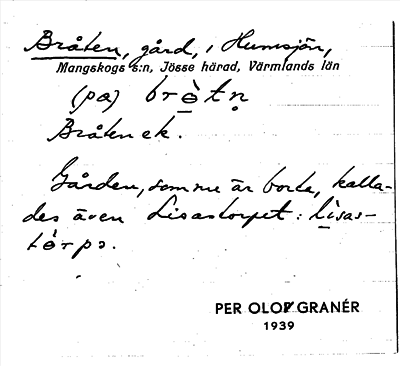 Bråten, gård, i Humsjön,
Mangskogs s:n, Jösse härad, Värmlands län
(pɔ) brò̱tṇ
Bråten ek.
Gården, som nu är borta, kalla-
des även Lisastorpet: lìsas-
tòrpə.
PER OLOF GRANÉR
1939